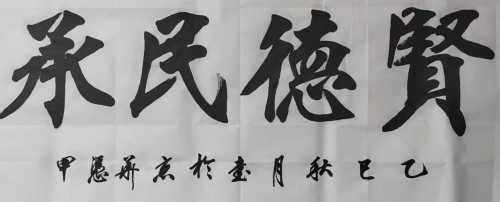 賢德民承
乙巳秋月書於京華甲